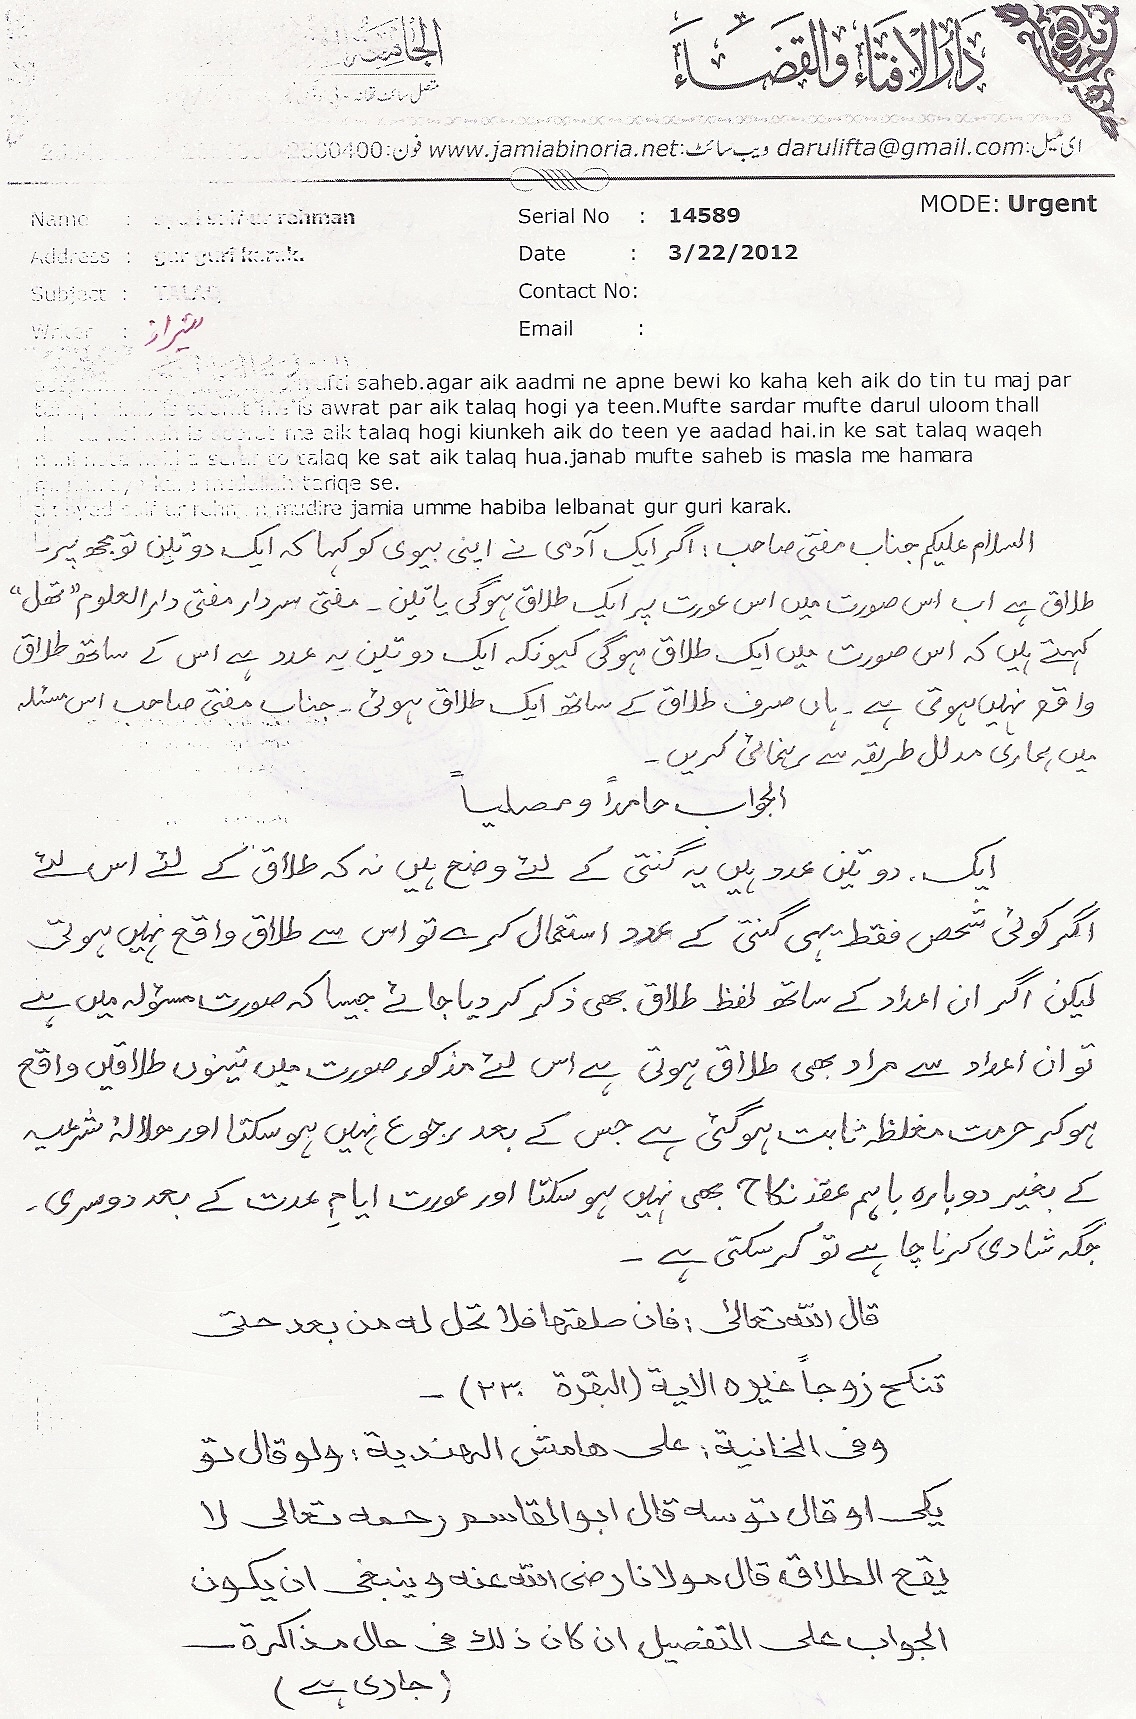 دار الافتاء والقضاء
الجامعة
ای میل:darulifta@gmail.com ویب سائٹ:www.jamiabinoria.net فون:2560400
MODE: Urgent
Name : rehman
Serial No : 14589
Address : gur guri karak.
Date : 3/22/2012
Subject : TALAQ
Contact No:
Writer : شیراز
Email :
saheb.agar aik aadmi ne apne bewi ko kaha keh aik do tin tu maj par
is awrat par aik talaq hogi ya teen.Mufte sardar mufte darul uloom thall
me aik talaq hogi kiunkeh aik do teen ye aadad hai.in ke sat talaq waqeh
talaq ke sat aik talaq hua.janab mufte saheb is masla me hamara
tariqe se.
mudire jamia umme habiba lelbanat gur guri karak.
السلام علیکم جناب مفتی صاحب : اگر ایک آدمی نے اپنی بیوی کو کہا کہ ایک دو تین تو مجھ پر
طلاق ہے اب اس صورت میں اس عورت پر ایک طلاق ہوگی یا تین ۔ مفتی سردار مفتی دارالعلوم "تھل"
کہتے ہیں کہ اس صورت میں ایک طلاق ہوگی کیونکہ ایک دو تین یہ عدد ہے اس کے ساتھ طلاق
واقع نہیں ہوتی ہے ۔ ہاں صرف طلاق کے ساتھ ایک طلاق ہوئی ۔ جناب مفتی صاحب اس مسئلہ
میں ہماری مدلل طریقہ سے رہنمائی کریں ۔
الجواب حامداً ومصلیاً
ایک، دو تین عدد ہیں یہ گنتی کے لئے وضع ہیں نہ کہ طلاق کے لئے اس لئے
اگر کوئی شخص فقط یہی گنتی کے عدد استعمال کرے تو اس سے طلاق واقع نہیں ہوتی
لیکن اگر ان اعداد کے ساتھ لفظ طلاق بھی ذکر کر دیا جائے جیسا کہ صورت مسؤلہ میں ہے
تو ان اعداد سے مراد بھی طلاق ہوتی ہے اس لئے مذکور صورت میں تینوں طلاقیں واقع
ہوکر حرمت مغلظہ ثابت ہوگئی ہے جس کے بعد رجوع نہیں ہوسکتا اور حلالۂ شرعیہ
کے بغیر دوبارہ باہم عقد نکاح بھی نہیں ہو سکتا اور عورت ایامِ عدت کے بعد دوسری ۔
جگہ شادی کرنا چاہے تو کر سکتی ہے ۔
قال اللہ تعالیٰ : فان طلقها فلا تحل له من بعد حتی
تنکح زوجاً غیره الایة (البقرة ۲۳۰) ۔
وفی الخانیة : علی هامش الهندیة : ولو قال تو
یکی او قال تو سه قال ابو القاسم رحمه تعالی لا
یقع الطلاق قال مولانا رضی اللہ عنه وینبغی ان یکون
الجواب علی التفصیل ان کان ذلك فی حال مذاکرة ۔
(جاری ہے)